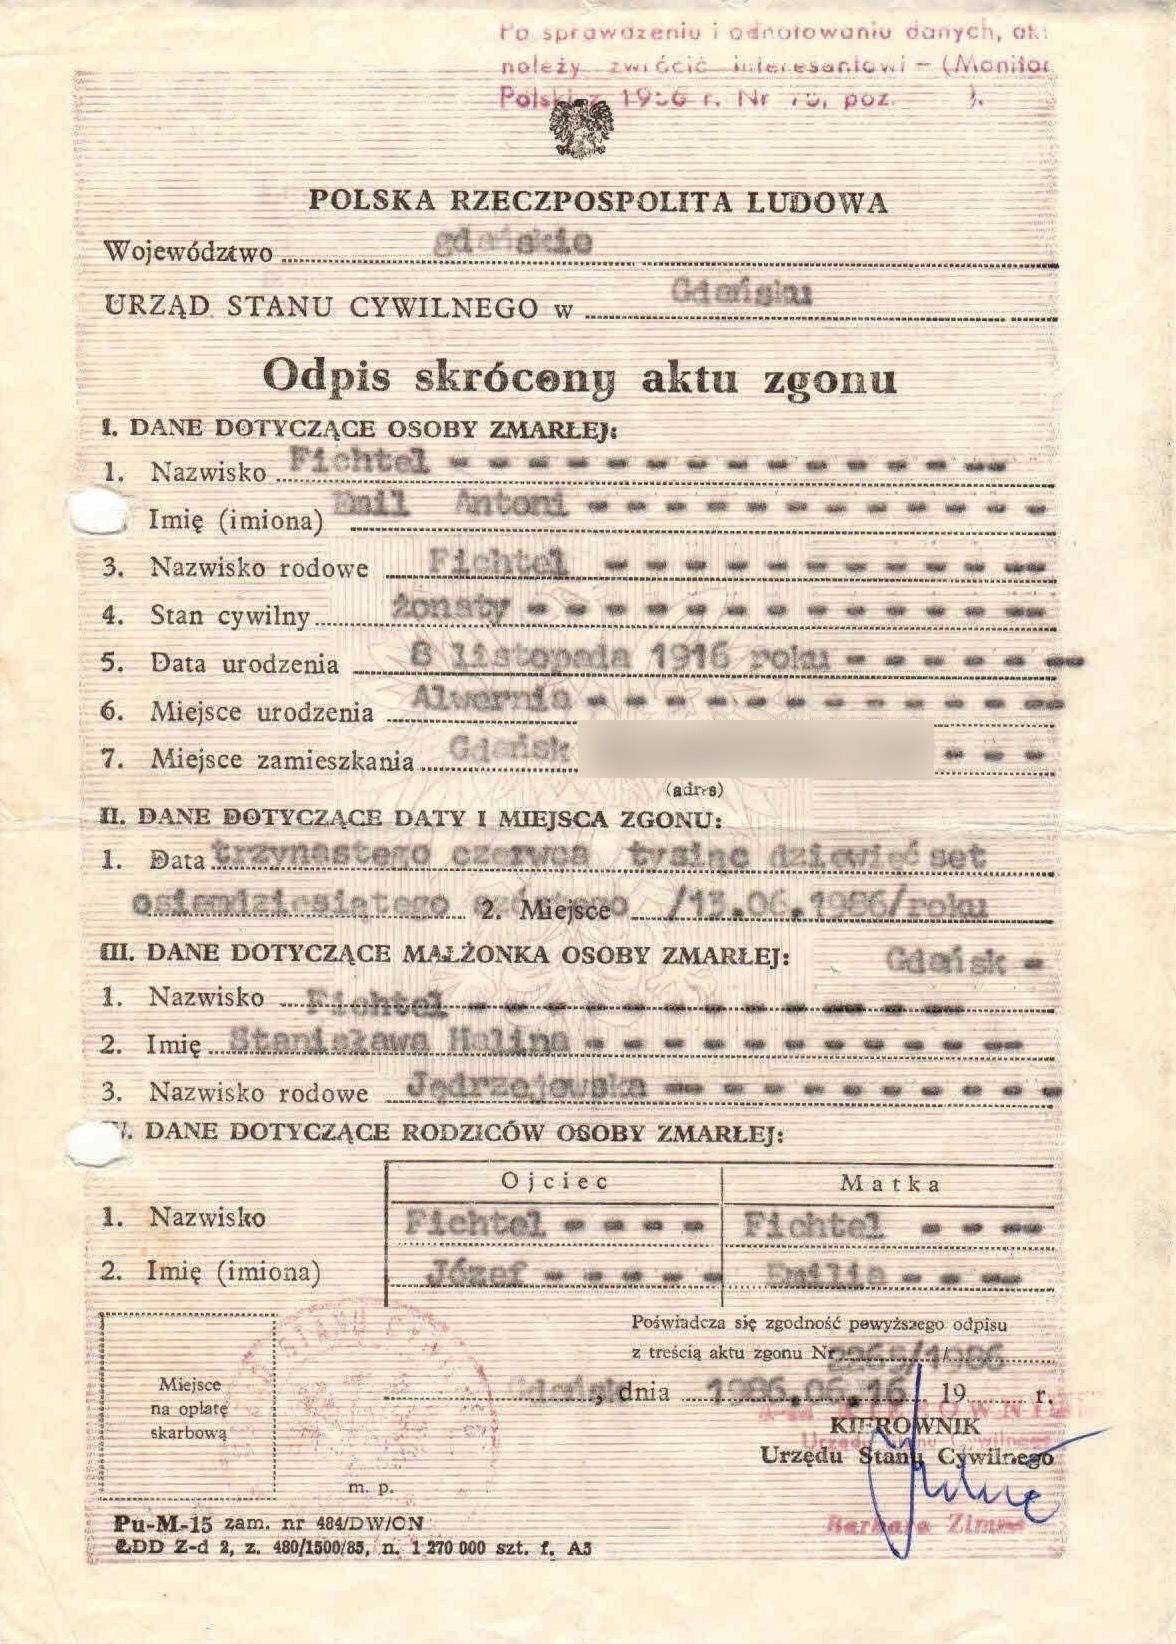 Po sprawdzeniu i odnotowaniu danych, akt
należy zwrócić interesantowi — (Monitor
Polski z 1956 r. Nr poz. ).
POLSKA RZECZPOSPOLITA LUDOWA
Województwo gdańskie
URZĄD STANU CYWILNEGO w Gdańsku
Odpis skrócony aktu zgonu
I. DANE DOTYCZĄCE OSOBY ZMARŁEJ:
1. Nazwisko Fichtel
Imię (imiona) Emil Antoni
3. Nazwisko rodowe Fichtel
4. Stan cywilny żonaty
5. Data urodzenia 8 listopada 1916 roku
6. Miejsce urodzenia Alwernia
7. Miejsce zamieszkania Gdańsk
(adres)
II. DANE DOTYCZĄCE DATY I MIEJSCA ZGONU:
1. Data trzynastego czerwca tysiąc dziewięćset
osiemdziesiątego szóstego 2. Miejsce /13.06.1986/roku
III. DANE DOTYCZĄCE MAŁŻONKA OSOBY ZMARŁEJ: Gdańsk -
1. Nazwisko Fichtel
2. Imię Stanisława Halina
3. Nazwisko rodowe Jędrzejowska
IV. DANE DOTYCZĄCE RODZICÓW OSOBY ZMARŁEJ:
Ojciec Matka
1. Nazwisko Fichtel Fichtel
2. Imię (imiona) Józef Emilia
Poświadcza się zgodność powyższego odpisu
z treścią aktu zgonu Nr 2265/1986
Gdańsk, dnia 1986.06.16 19 r.
Miejsce
na opłatę
skarbową
KIEROWNIK
Urzędu Stanu Cywilnego
m. p.
Barbara
Pu-M-15 zam. nr 484/DW/ON
ŁDD Z-d 2, z. 480/1500/85, n. 1 270 000 szt. f. A5